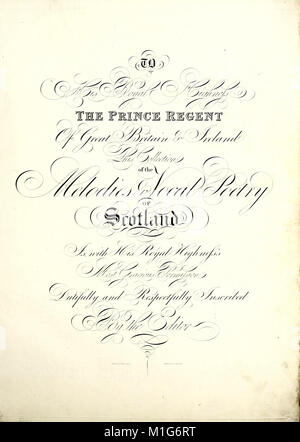 TO
His Royal Highness
THE PRINCE REGENT
Of Great Britain & Ireland
This Collection
of the
Melodies & Vocal Poetry
OF
Scotland
Is, with His Royal Highness's
Most Gracious Permission
Dutifully and Respectfully Inscribed
By the Editor
alamy
Image ID: M1G6RT
www.alamy.com